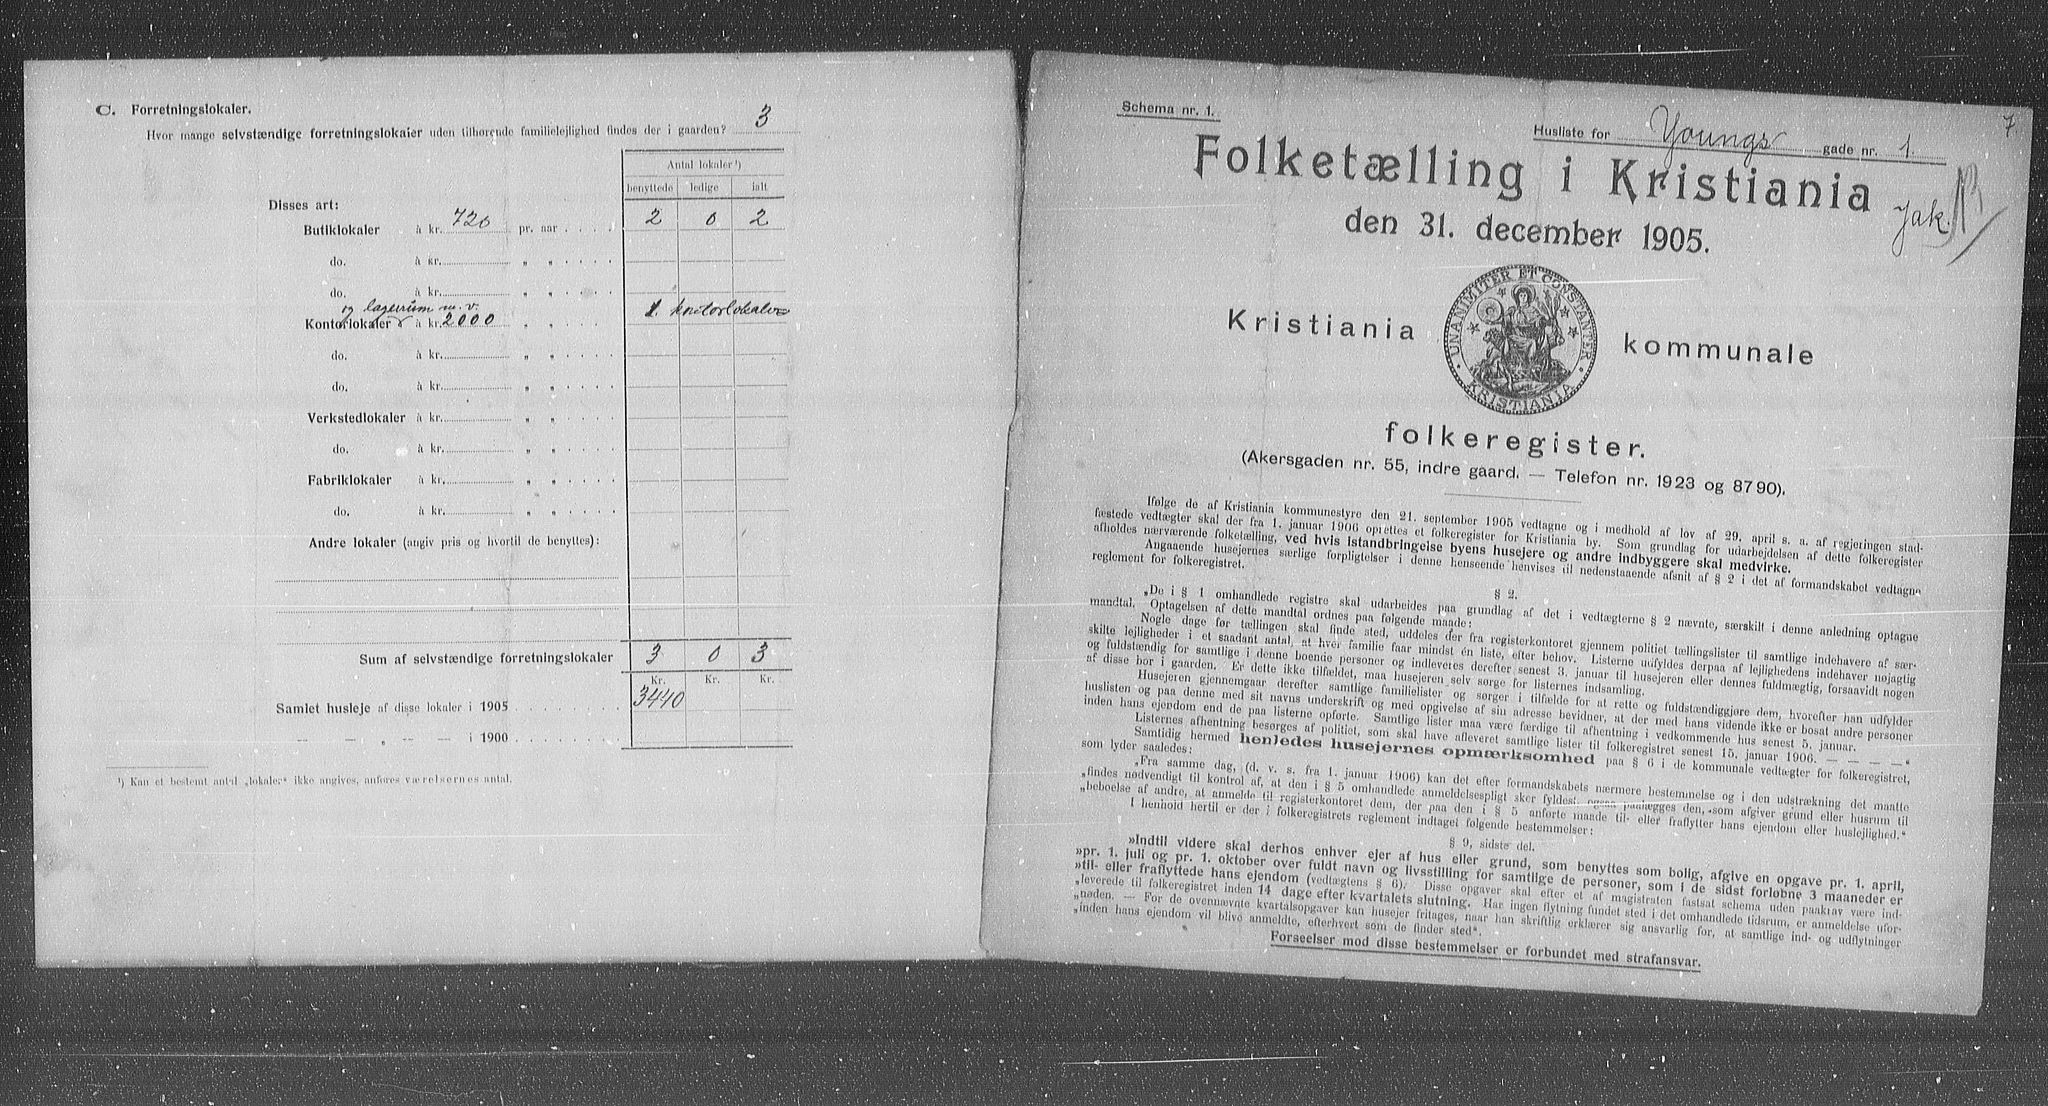 C. Forretningslokaler.
Hvor mange selvstændige forretningslokaler uden tilhørende familielejlighed findes der i gaarden? 3
Antal lokaler ¹)
benyttede ledige ialt
Disses art:
Butiklokaler à kr. 720 pr. aar . . . . 2 0 2
do. à kr. „ „ . . . .
do. à kr. „ „ . . . .
og lagerrum m. v.
Kontorlokaler à kr. 2000 „ „ . . . . 1 kontorlokale
do. à kr. „ „ . . . .
do. à kr. „ „ . . . .
Verkstedlokaler à kr. „ „ . . . .
do. à kr. „ „ . . . .
Fabriklokaler à kr. „ „ . . . .
do. à kr. „ „ . . . .
Andre lokaler (angiv pris og hvortil de benyttes):
Sum af selvstændige forretningslokaler 3 0 3
Kr. Kr. Kr.
Samlet husleje af disse lokaler i 1905 . . . . . . . . 3440
— — „ — — i 1900 . . . . . . . .
¹) Kan et bestemt antal „lokaler“ ikke angives, anføres værelsernes antal.
7.
Schema nr. 1.
Husliste for Youngs gade nr. 1.
Folketælling i Kristiania
Jak.
den 31. december 1905.
UNANIMITER ET CONSTANTER
KRISTIANIA
Kristiania kommunale
folkeregister.
(Akersgaden nr. 55, indre gaard. — Telefon nr. 1923 og 8790).
Ifølge de af Kristiania kommunestyre den 21. september 1905 vedtagne og i medhold af lov af 29. april s. a. af regjeringen stad-
fæstede vedtægter skal der fra 1. januar 1906 oprettes et folkeregister for Kristiania by. Som grundlag for udarbejdelsen af dette folkeregister
afholdes nærværende folketælling, ved hvis istandbringelse byens husejere og andre indbyggere skal medvirke.
Angaaende husejernes særlige forpligtelser i denne henseende henvises til nedenstaaende afsnit af § 2 i det af formandskabet vedtagne
reglement for folkeregistret.
§ 2.
„De i § 1 omhandlede registre skal udarbeides paa grundlag af det i vedtægterne § 2 nævnte, særskilt i denne anledning optagne
mandtal. Optagelsen af dette mandtal ordnes paa følgende maade:
Nogle dage før tællingen skal finde sted, uddeles der fra registerkontoret gjennem politiet tællingslister til samtlige indehavere af sær-
skilte lejligheder i et saadant antal, at hver familie faar mindst én liste, efter behov. Listerne udfyldes derpaa af lejlighedens indehaver nøjagtig
og fuldstændig for samtlige i denne boende personer og indleveres derefter senest 3. januar til husejeren eller dennes fuldmægtig, forsaavidt nogen
af disse bor i gaarden. Er dette ikke tilfældet, maa husejeren selv sørge for listernes indsamling.
Husejeren gjennemgaar derefter samtlige familielister og sørger i tilfælde for at rette og fuldstændiggjøre dem, hvorefter han udfylder
huslisten og paa denne med sit navns underskrift og med opgivelse af sin adresse bevidner, at der med hans vidende ikke er bosat andre personer
inden hans ejendom end de paa listerne opførte. Samtlige lister maa være færdige til afhentning i vedkommende hus senest 5. januar.
Listernes afhentning besørges af politiet, som skal have afleveret samtlige lister til folkeregistret senest 15. januar 1906. — — — —“
Samtidig hermed henledes husejernes opmærksomhed paa § 6 i de kommunale vedtægter for folkeregistret,
som lyder saaledes:
„Fra samme dag, (d. v. s. fra 1. januar 1906) kan det efter formandskabets nærmere bestemmelse og i den udstrækning det maatte
„findes nødvendigt til kontrol af, at den i § 5 omhandlede anmeldelsespligt sker fyldest, ogsaa paalægges den, som afgiver grund eller husrum til
„beboelse af andre, at anmelde til registerkontoret dem, der paa den i § 5 anførte maade til- eller fraflytter hans ejendom eller huslejlighed.“
I henhold hertil er der i folkeregistrets reglement indtaget følgende bestemmelser:
§ 9, sidste del.
»Indtil videre skal derhos enhver ejer af hus eller grund, som benyttes som bolig, afgive en opgave pr. 1. april,
»pr. 1. juli og pr. 1. oktober over fuldt navn og livsstilling for samtlige de personer, som i de sidst forløbne 3 maaneder er
»til- eller fraflyttede hans ejendom (vedtægtens § 6). Disse opgaver skal efter et af magistraten fastsat schema uden paakrav være ind-
„leverede til folkeregistret inden 14 dage efter kvartalets slutning. Har ingen flytning fundet sted i det omhandlede tidsrum, er anmeldelse ufor-
„nøden. — For de ovennævnte kvartalsopgaver kan husejer fritages, naar han skriftlig erklærer sig ansvarlig for, at samtlige ind- og udflytninger
„inden hans ejendom vil blive anmeldte, efterhvert som de finder sted“.
Forseelser mod disse bestemmelser er forbundet med strafansvar.